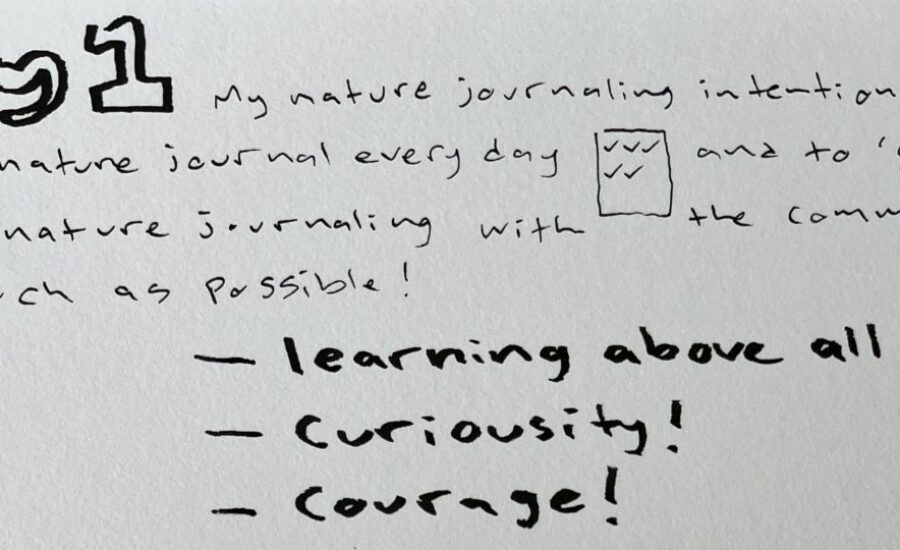 y 1 My nature journaling intention
nature journal every day and to
nature journaling with the comm
ch as possible!
— learning above all
— curiousity!
— courage!